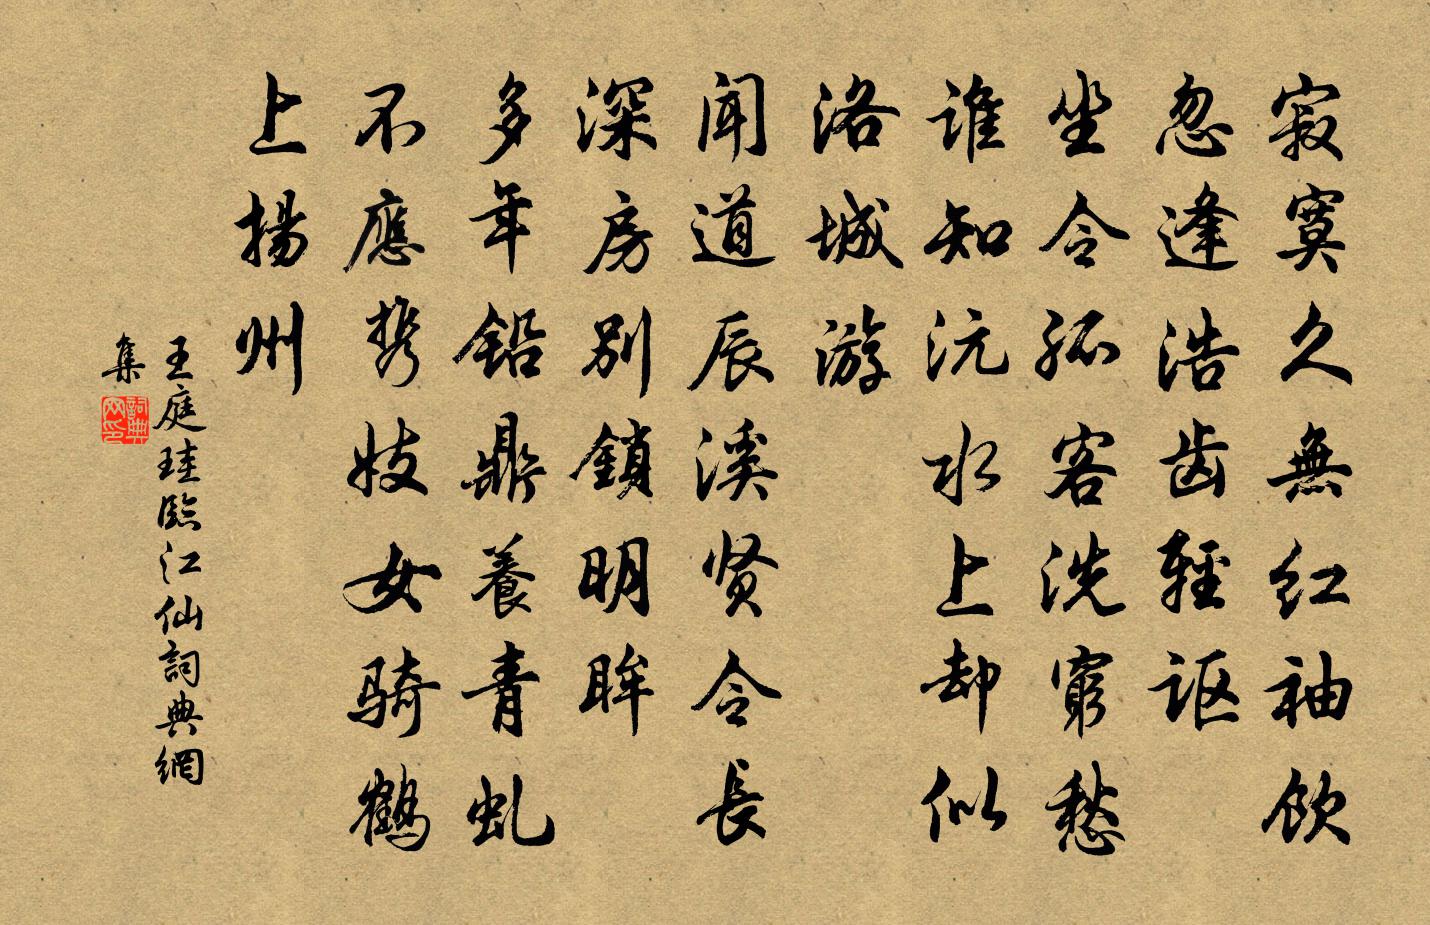 寂寞久無红袖飲
忽逢浩齿輕讴
坐令孤客洗窮愁
谁知沅水上
却似洛城游
闻道辰溪贤令長
深房别鎖明眸
多年铅鼎養青虬
不應携妓女
骑鹤上揚州
王庭珪臨江仙詞典網
集
詞典网印